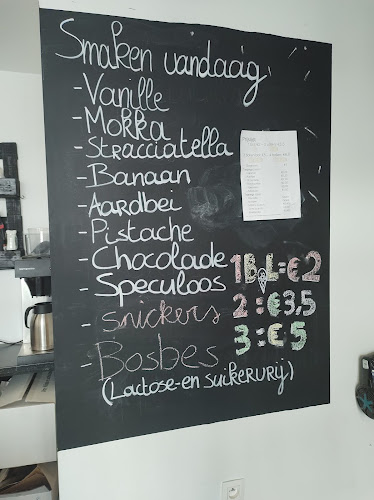 Smaken vandaag
- Vanille
- Mokka
- Stracciatella
- Banaan
- Aardbei
- Pistache
- Chocolade
- Speculoos
- snickers
- Bosbes
(Lactose-en suikervrij)
1 BoL = €2
2 : €3,5
3 : €5